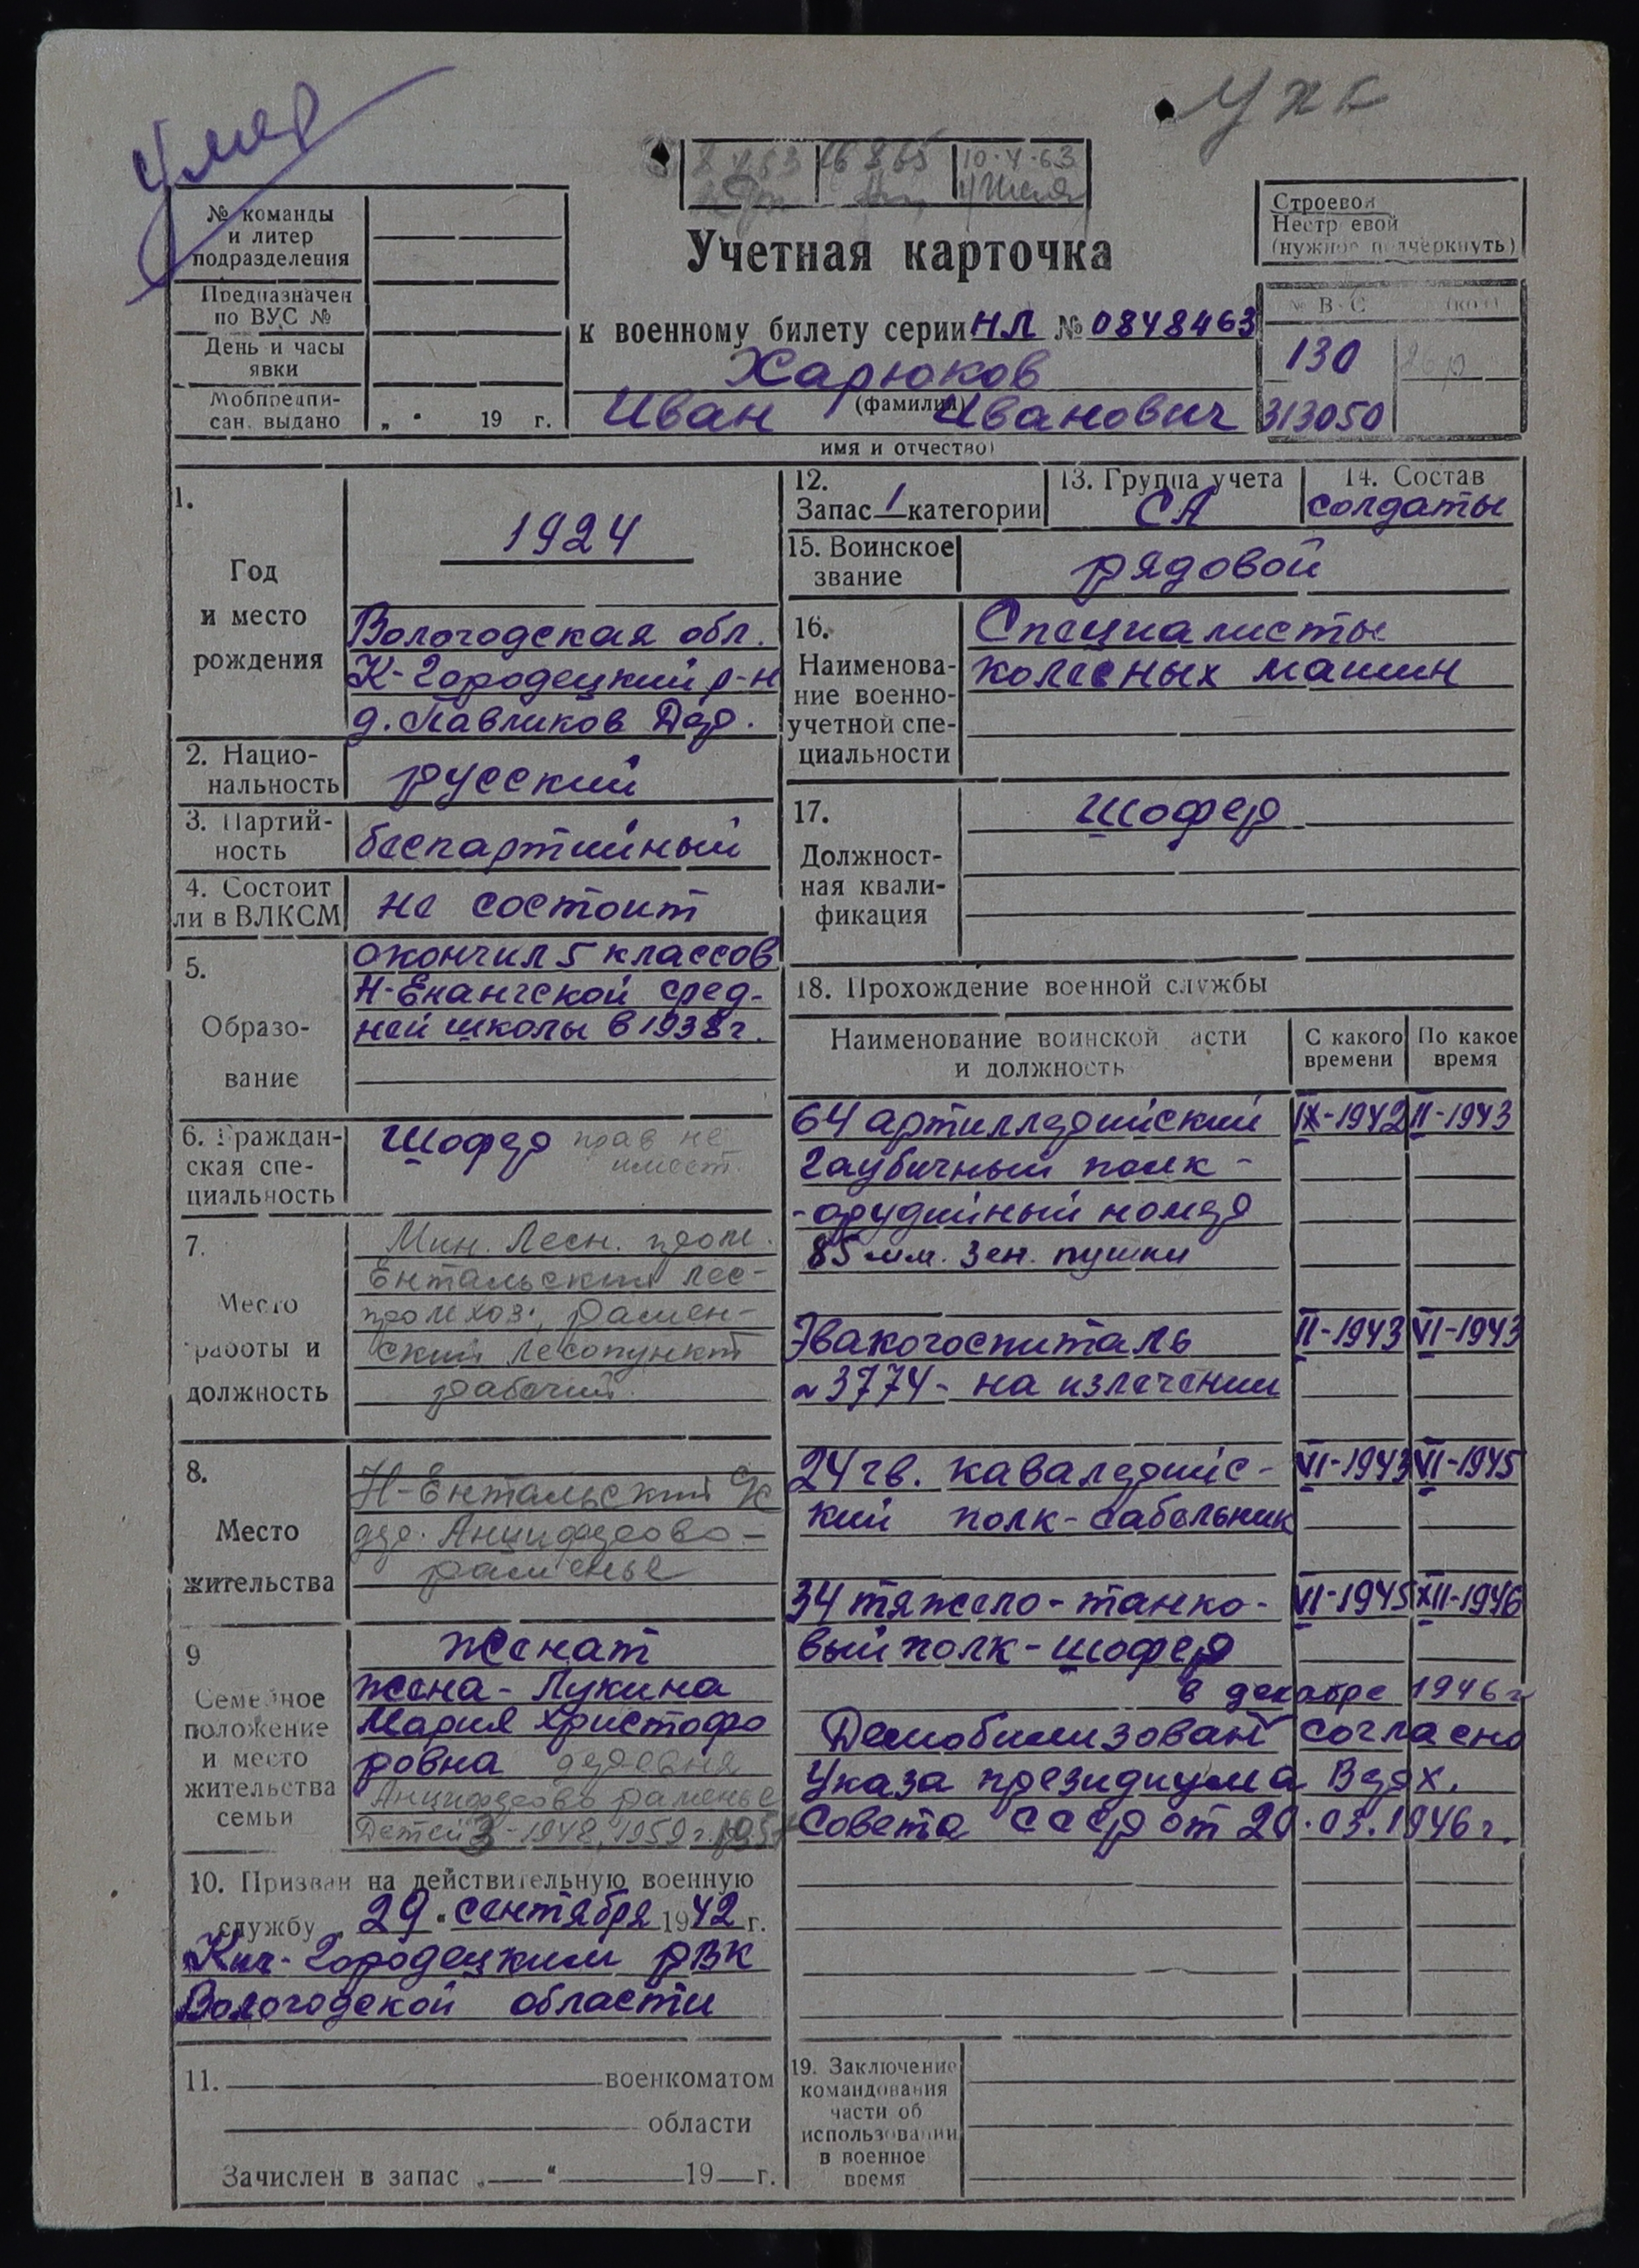 Умер
УХК
10.4.63
№ команды
и литер
подразделения
Предназначен
по ВУС №
День и часы
явки
Мобпредпи-
сан. выдано „ “ 19 г.
Строевой
Нестроевой
(нужное подчеркнуть)
Учетная карточка
к военному билету серии НЛ № 0848463
130
313050
Харюков
(фамилия)
Иван Иванович
имя и отчество)
1.
Год
и место
рождения
1924
Вологодская обл.
К-Городецкий р-н
д. Павликов Дор.
2. Нацио-
нальность
русский
3. Партий-
ность
беспартийный
4. Состоит
ли в ВЛКСМ
не состоит
5.
Образо-
вание
окончил 5 классов
Н-Енангской сред-
ней школы в 1938 г.
6. Граждан-
ская спе-
циальность
Шофер прав не
имеет.
7.
Место
работы и
должность
Мин. Лесн. пром.
Ентальский лес-
промхоз, рамен-
ский лесопункт
рабочий.
8.
Место
жительства
Н-Ентальский с/с
дер. Анциферово-
раменье
9
Семейное
положение
и место
жительства
семьи
Женат
жена - Лукина
Мария Христофо
ровна деревня
Анциферово раменье
Детей 3 - 1948, 1959 г.
10. Призван на действительную военную
службу „ 29 “ сентября 1942 г.
Кич-Городецким РВК
Вологодской области
11. военкоматом
области
Зачислен в запас „ “ 19 г.
12.
Запас 1 категории
13. Группа учета
СА
14. Состав
солдаты
15. Воинское
звание
рядовой
16.
Наименова-
ние военно-
учетной спе-
циальности
Специалисты
колесных машин
17.
Должност-
ная квали-
фикация
Шофер
18. Прохождение военной службы
Наименование воинской части
и должность
С какого
времени
По какое
время
64 артиллерийский IX-1942 II-1943
гаубичный полк -
- орудийный номер
85 мм. зен. пушки
Эвакогоспиталь II-1943 VI-1943
№ 3774 - на излечении
24 гв. кавалерийс- VI-1943 VI-1945
кий полк - сабельник
34 тяжело-танко- VI-1945 XII-1946
вый полк - шофер
в декабре 1946 г
Демобилизован согласно
Указа президиума Верх.
Совета СССР от 20.03.1946 г.
19. Заключение
командования
части об
использовании
в военное
время